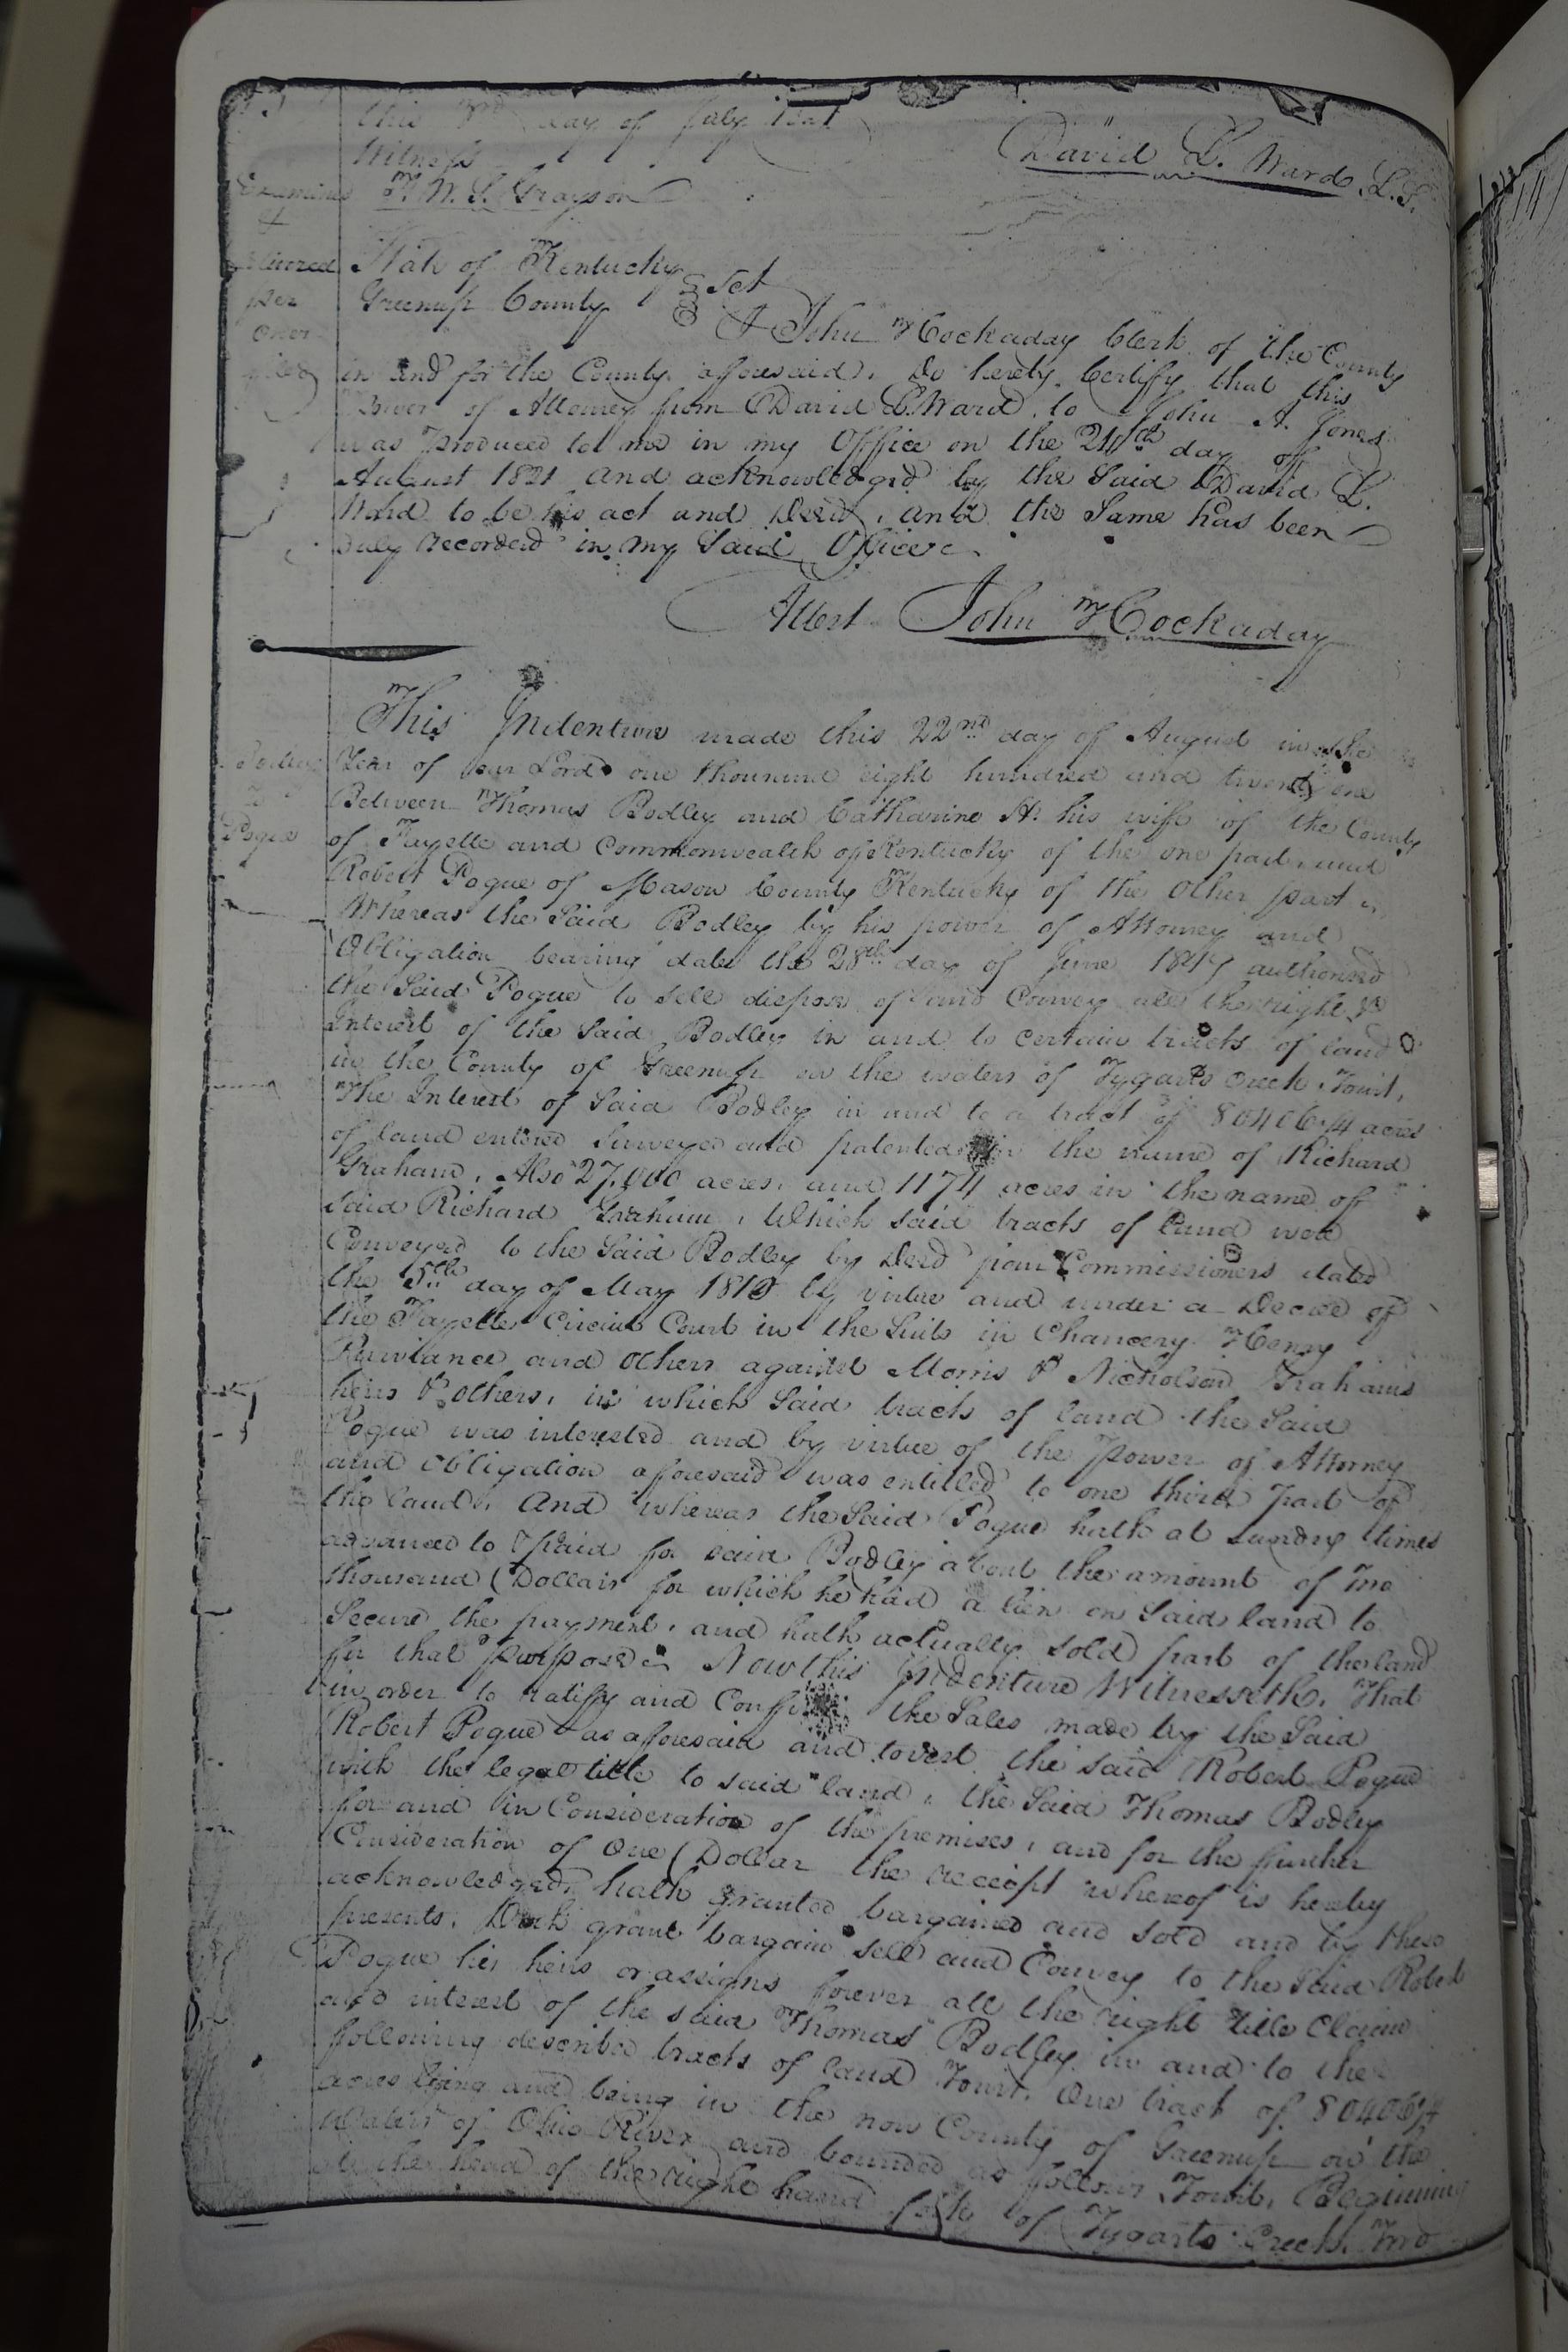 this 3rd day of July 1821
Witness
David L. Ward L.S.
Examined T. W. S. Grayson
&
State of Kentucky
per Greenup County Sct
I John Hockaday Clerk of the County
in and for the County afforesaid, Do hereby Certify that this
Power of Attorney from David L. Ward to John A. Jones
was produced to me in my Office on the 24th day of
August 1821 and acknowledged by the Said David L.
Ward to be his act and Deed, and the Same has been
duly recorded in my Said Office
Attest John Hockaday
This Indenture made this 22nd day of August in the
Year of our Lord one thousand eight hundred and twenty one
Between Thomas Bodley and Catharine H. his wife of the County
Pogue
of Fayette and Commonwealth of Kentucky of the one part, and
Robert Pogue of Mason County Kentucky of the Other part
Whereas the Said Bodley by his power of Attorney and
Obligation bearing date the 28th day of June 1817 authorised
the Said Pogue to sell dispose of and Convey all the right &
Interest of the Said Bodley in and to certain tracts of land
in the County of Greenup on the waters of Tygarts Creek Towit,
The Interest of Said Bodley in and to a tract of 80406¼ acres
of land entered Surveyed and patented in the name of Richard
Graham, Also 27,000 acres, and 1174 acres in the name of
Said Richard Graham, Which said tracts of land were
Conveyed to the Said Bodley by Deed from Commissioners dated
the 5th day of May 181 by virtue and under a Decree of
the Fayette Circuit Court in the Suits in Chancery Henry
Purviance and Others against Morris & Nicholson Grahams
heirs & others, in which Said tracts of land the Said
Pogue was interested and by virtue of the Power of Attorney
and obligation afforesaid was entitled to one third part of
the land, And whereas the Said Pogue hath at Sundry times
advanced to & paid for said Bodley about the amount of Two
thousand Dollars for which he had a lien on Said land to
Secure the payment, and hath actually sold part of the land
for that purpose Now this Indenture Witnesseth, That
in order to ratify and Confirm the Sales made by the Said
Robert Pogue as afforesaid and to vest the said Robert Pogue
with the legal title to said land, the Said Thomas Bodley
for and in Consideration of the premises, and for the further
Consideration of One Dollar the receipt whereof is hereby
acknowledged, hath granted bargained and sold and by these
presents, Doth grant bargain Sell and Convey to the Said Robert
Pogue his heirs or assigns forever all the right title Claim
and interest of the said Thomas Bodley in and to the
following described tracts of land Towit, One tract of 80406¼
acres lying and being in the now County of Greenup on the
Waters of Ohio River and bounded as follows Towit, Beginning
at the head of the right hand fork of Tygarts Creek, Two